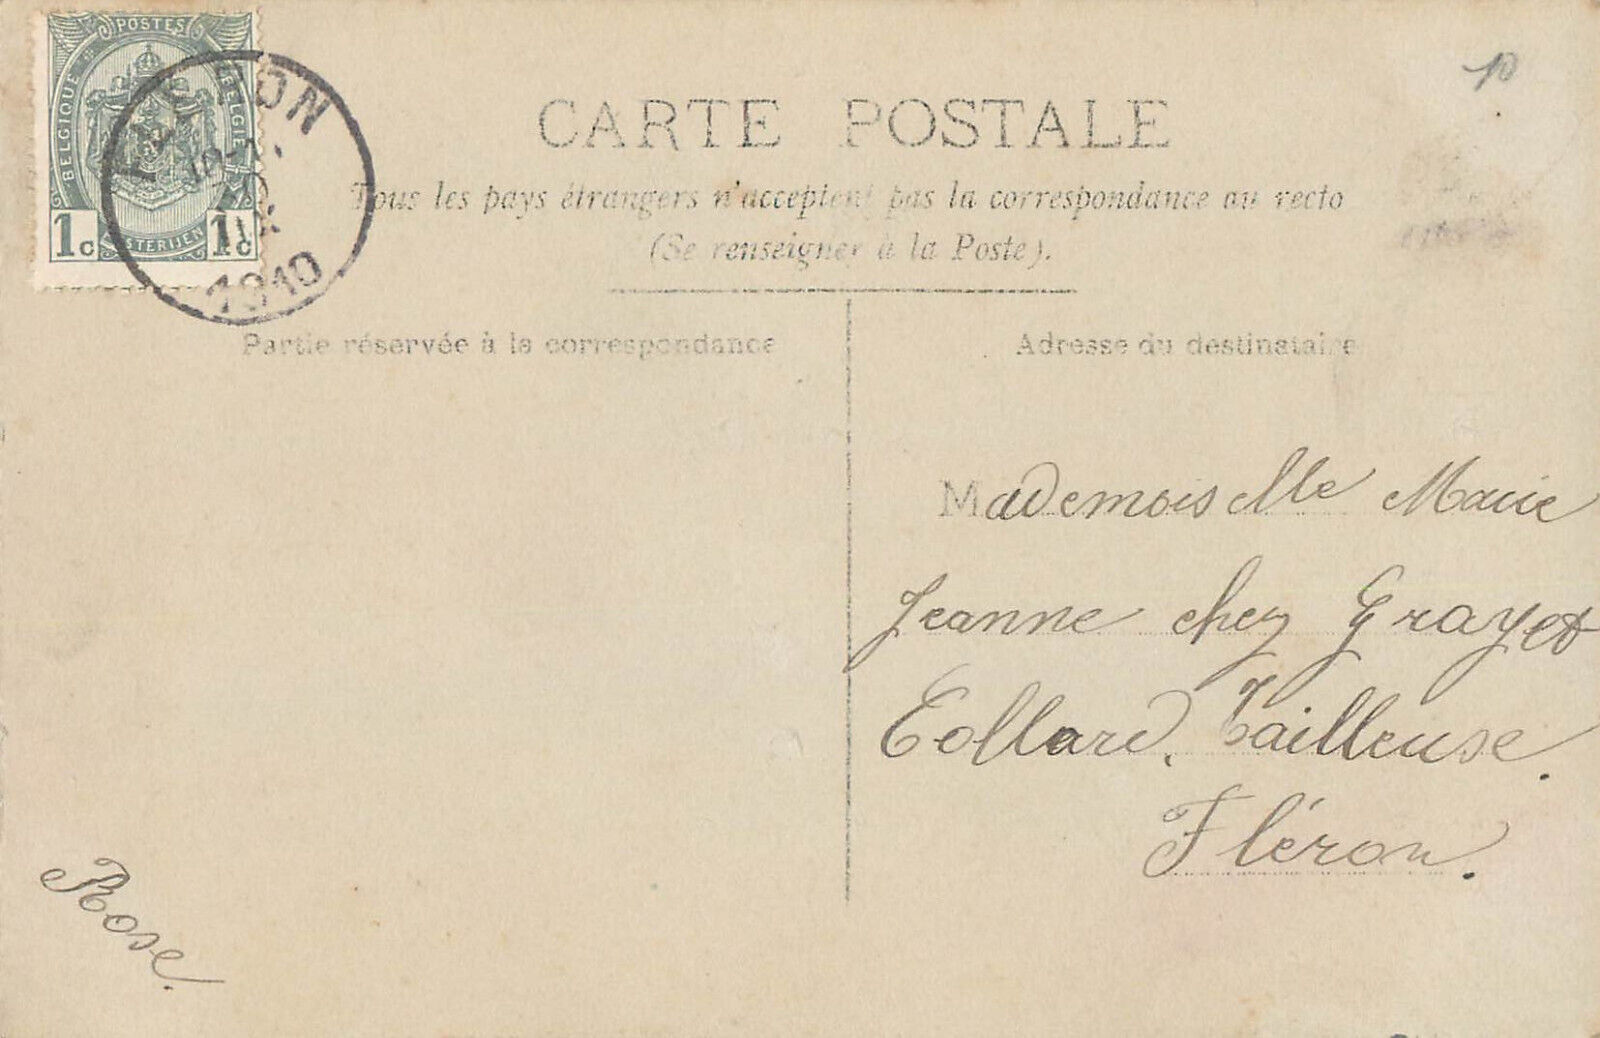 POSTES
BELGIQUE BELGIË
1c 1c
1910
10
CARTE POSTALE
Tous les pays étrangers n'acceptent pas la correspondance au recto
(Se renseigner à la Poste).
Partie réservée à la correspondance
Adresse du destinataire
Mademoiselle Marie
Jeanne chez Grayet
Collard. Tailleuse.
Fléron.
Rose.